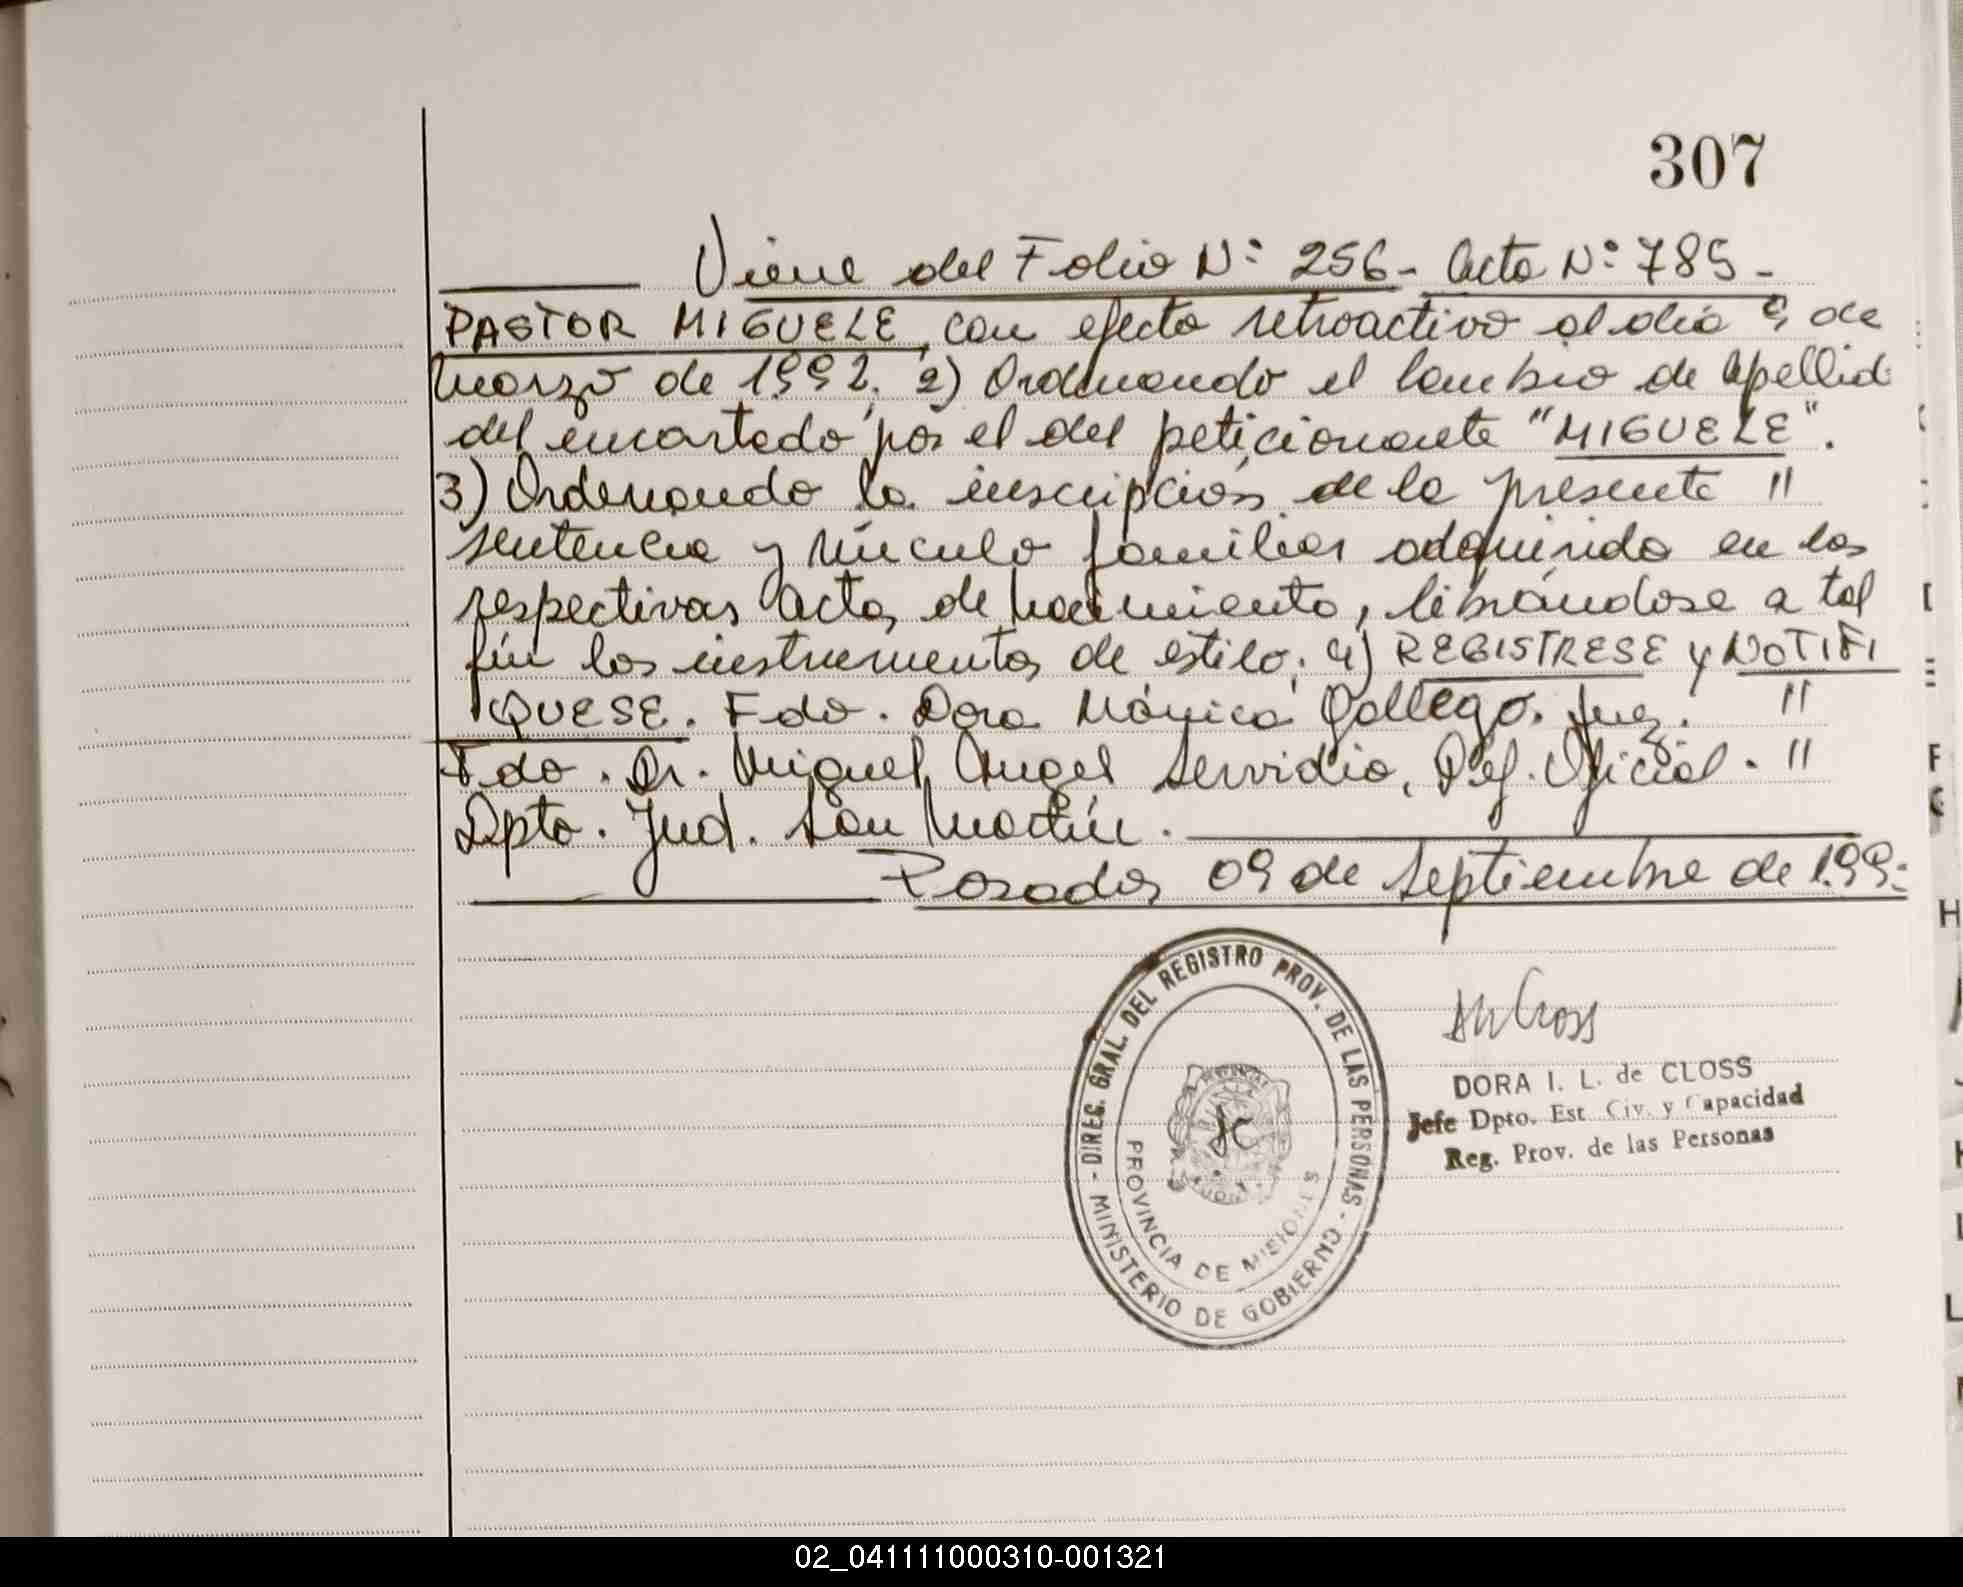 307
Viene del Folio Nº 256 - Acta Nº 785 -
PASTOR MIGUELE, con efecto retroactivo al día 9 de
Marzo de 1992. 2) Ordenando el Cambio de Apellid
del encartado por el del peticionante "MIGUELE".
3) Ordenando la inscripción de la presente "
sentencia y vínculo familiar adquirido en las
respectivas actas de Nacimiento, librándose a tal
fin los instrumentos de estilo. 4) REGISTRESE y NOTIFI
QUESE. Fdo. Dora Mónica Gallego. Juez. "
Fdo. Dr. Miguel Angel Servidio, Def. Oficial. "
Dpto. Jud. San Martín.
Posadas 09 de Septiembre de 199
DIREC. GRAL. DEL REGISTRO PROV. DE LAS PERSONAS
- MINISTERIO DE GOBIERNO -
PROVINCIA DE MISIONES
DORA I. L. de CLOSS
Jefe Dpto. Est. Civ. y Capacidad
Reg. Prov. de las Personas
02_041111000310-001321